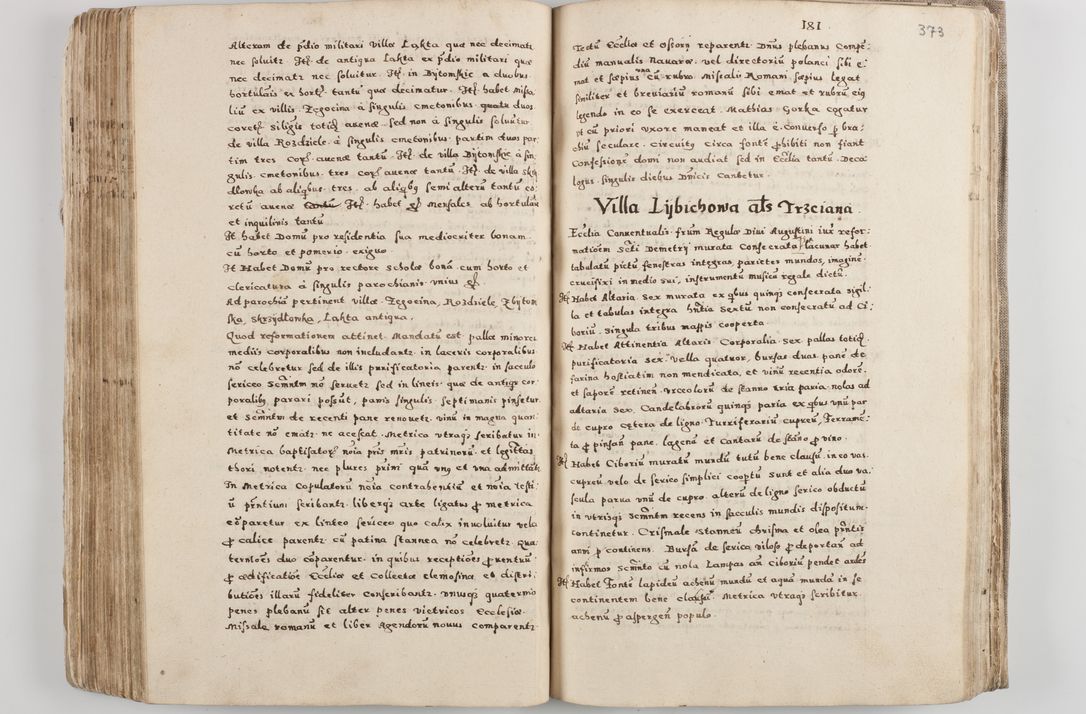 Alteram de p̃dio militari villæ Ląkta quæ nec decimatr
nec soluitr. Itẽ. de antiqua Lakta ex p̃dio militari quæ
nec decimatr nec soluitur. Itẽ. in Bÿtomskie a duobus
hortulanis ex hortz. tantũ quæ decimatur. Itẽ. habet Missa
liũ ex villis. Zegocina â singulis cmetonibus quatuor duos
coretz. siliginis totidẽ auenæ. sed non â singulis soluũtur.
de villa Rozdziele. â singulis cmetonibus. partim duos par
tim tres. Cors auenæ tantũ. Itẽ. de villa Bÿtomskie â sin
gulis. cmetonibus. tres cors auenæ tantũ. Itẽ. de villa Skrzÿ
dlowka ab aliqbus. tres. ab aliqbq semialterũ tantũ co
retũ auenæ Itẽ. habet Mensales ab hortulanis
et inquilinis tantũ
It. habet Domũ pro residentia sua mediocriter bonam.
cũ horto et pomerio exiguo
It Habet Domũ pro rectore scholæ bonã cum horto et
clericatura â singulis parochianis vnius
Ad parochiã pertinent villæ Zegocina, Rozdziele, Zbÿtom
ska, Skrzÿdlowka, Lakta antiqua.
Quod reformationem attinet. Mandatũ est. pallæ minores
mediis corporalibus non includantr. in laceris corporalibus
nõ celebretur sed de illis purificatoria parentr. in sacculo
sericeo Scmn̄tm nõ seruetr. sed in lineis. quæ de antiqr cor
poralibq parari possũt, panis singulis septimanis pinsetur
et Scmn̄tm de recenti pane renouetr. vinũ in magna quan
titate nõ ematr. ne acescat. Metrica vtraqs scribatur in
Metrica baptisator̃ nõia pris mris patrinorũ et legittæ
thori notentr. nec plures primi quã vnq et vna admittãtr
In Metrica Copulatorũ nõia contrahentiũ et nõia testi
ũ prntium scribantr. liberqs arte ligatus p̃ metrica
cõparetur ex linteo sericeo quo calix inuoluitur vela
p̃ calice parentr. cũ patina stannea nõ celebretr. Qua
terniões duo cõparentur. in quibus receptiões prouentuũ
p̃ ædificatiõe Ecclīæ et Collectæ elemosinæ et distri
butiões illarũ fideliter conscribantr. vnusqs quaternio
penes plebanũ sit alter penes vietricos Ecclesiæ
Missale romanũ et liber Agendorũ nouus comparentr
181
373
Tectũ Ecclīæ et Ossorij reparentr. Dnus plebanus Compe
diũ manualis Nauaræ. vel directoriũ polanci sibi e
mat et sæpius vna cũ rubro. Missalis Romani sæpius legat
similiter et breuiariũ romanũ sibi emat et rubrũ eiq
legendo in eo se exerceat. Mathias Gorka cogatur
vt cũ priori vxore maneat et illa è conuerso p̃ bra
chiũ seculare. Circuitq circa fontẽ p̃hibiti non fiant
Confessiones domi non audiat sed in Ecclīa tantũ. Deca
logus. singulis diebus Dnicis Cantetur.
Villa Lÿbichowa als Trzciana
Ecclīa Conuentualis frum Regulæ Diui Augustini iux refor
natioẽm Scti Demetrÿ murata Consecrata, lacunar habet
tabulatũ pictũ fenestras integras, parietes mundos, imaginẽ
crucifixi in medio sui, instrumentũ musicũ regale dictũ.
Itẽ Habet Altaria sex murata ex qbus quinqs consecrata sigil
la et tabulas integra hñtia sextũ non consecratũ ad Ci
boriũ. singula tribus mappis cooperta.
Itẽ Habet Attinentia Altaris Corporalia sex pallas totidẽ
purificatoria sex. vella quatuor, bursas duas. panẽ de
farina hostiatim non mendicata, et vinũ recentia odorẽ
et saporẽ retinen. vrceolorũ de stanno tria paria. nolas ad
altaria sex. Candelabrorũ quinqs paria ex qbus vnũ par
de cupro cætera de ligno. Turriferariũ cupreũ, Ferramẽ
ta p̃ pinsan pane. lagenã et Cantarũ de stãno p̃ vino.
Itẽ Habet Ciboriũ muratũ mundũ tutũ bene clausũ, in eo vas
cupreũ velo de serico simplici coopertũ. sunt et alia duo va
scula parua vnũ de cupro. alterũ de ligno serico obductũ
in vtrisqs Scmn̄tm recens in sacculis mundis dispositum
continetur. Crismale stanneũ chrisma et olea prñtis
anni p continens. Bursã de serica viloso p̃ deportan ad
infirmos Scmn̄to cũ nola Lampas añ Ciboriũ pendet ardẽs
Itẽ Habet Fontẽ lapideũ achenũ mundũ et aquã mundã in se
continentem bene clausũ. Metrica vtraqs scribitur.
achenũ p̃ aspergen populo.